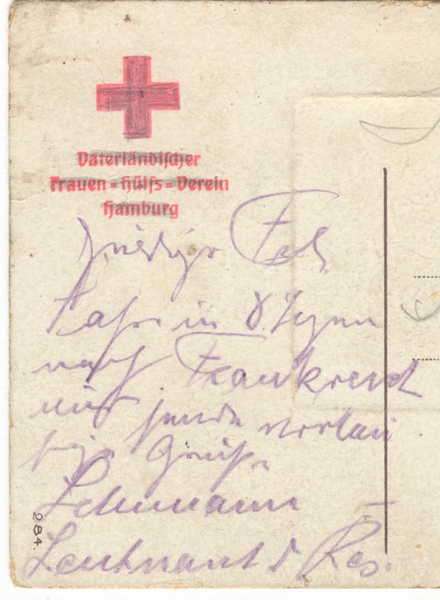 Vaterländischer
Frauen-Hülfs-Verein
Hamburg
Fahr in 8. Tagen
nach Frankreich
und sende vorläu
fige Grüße
Lehmann
Leutnant d. Res.
284.